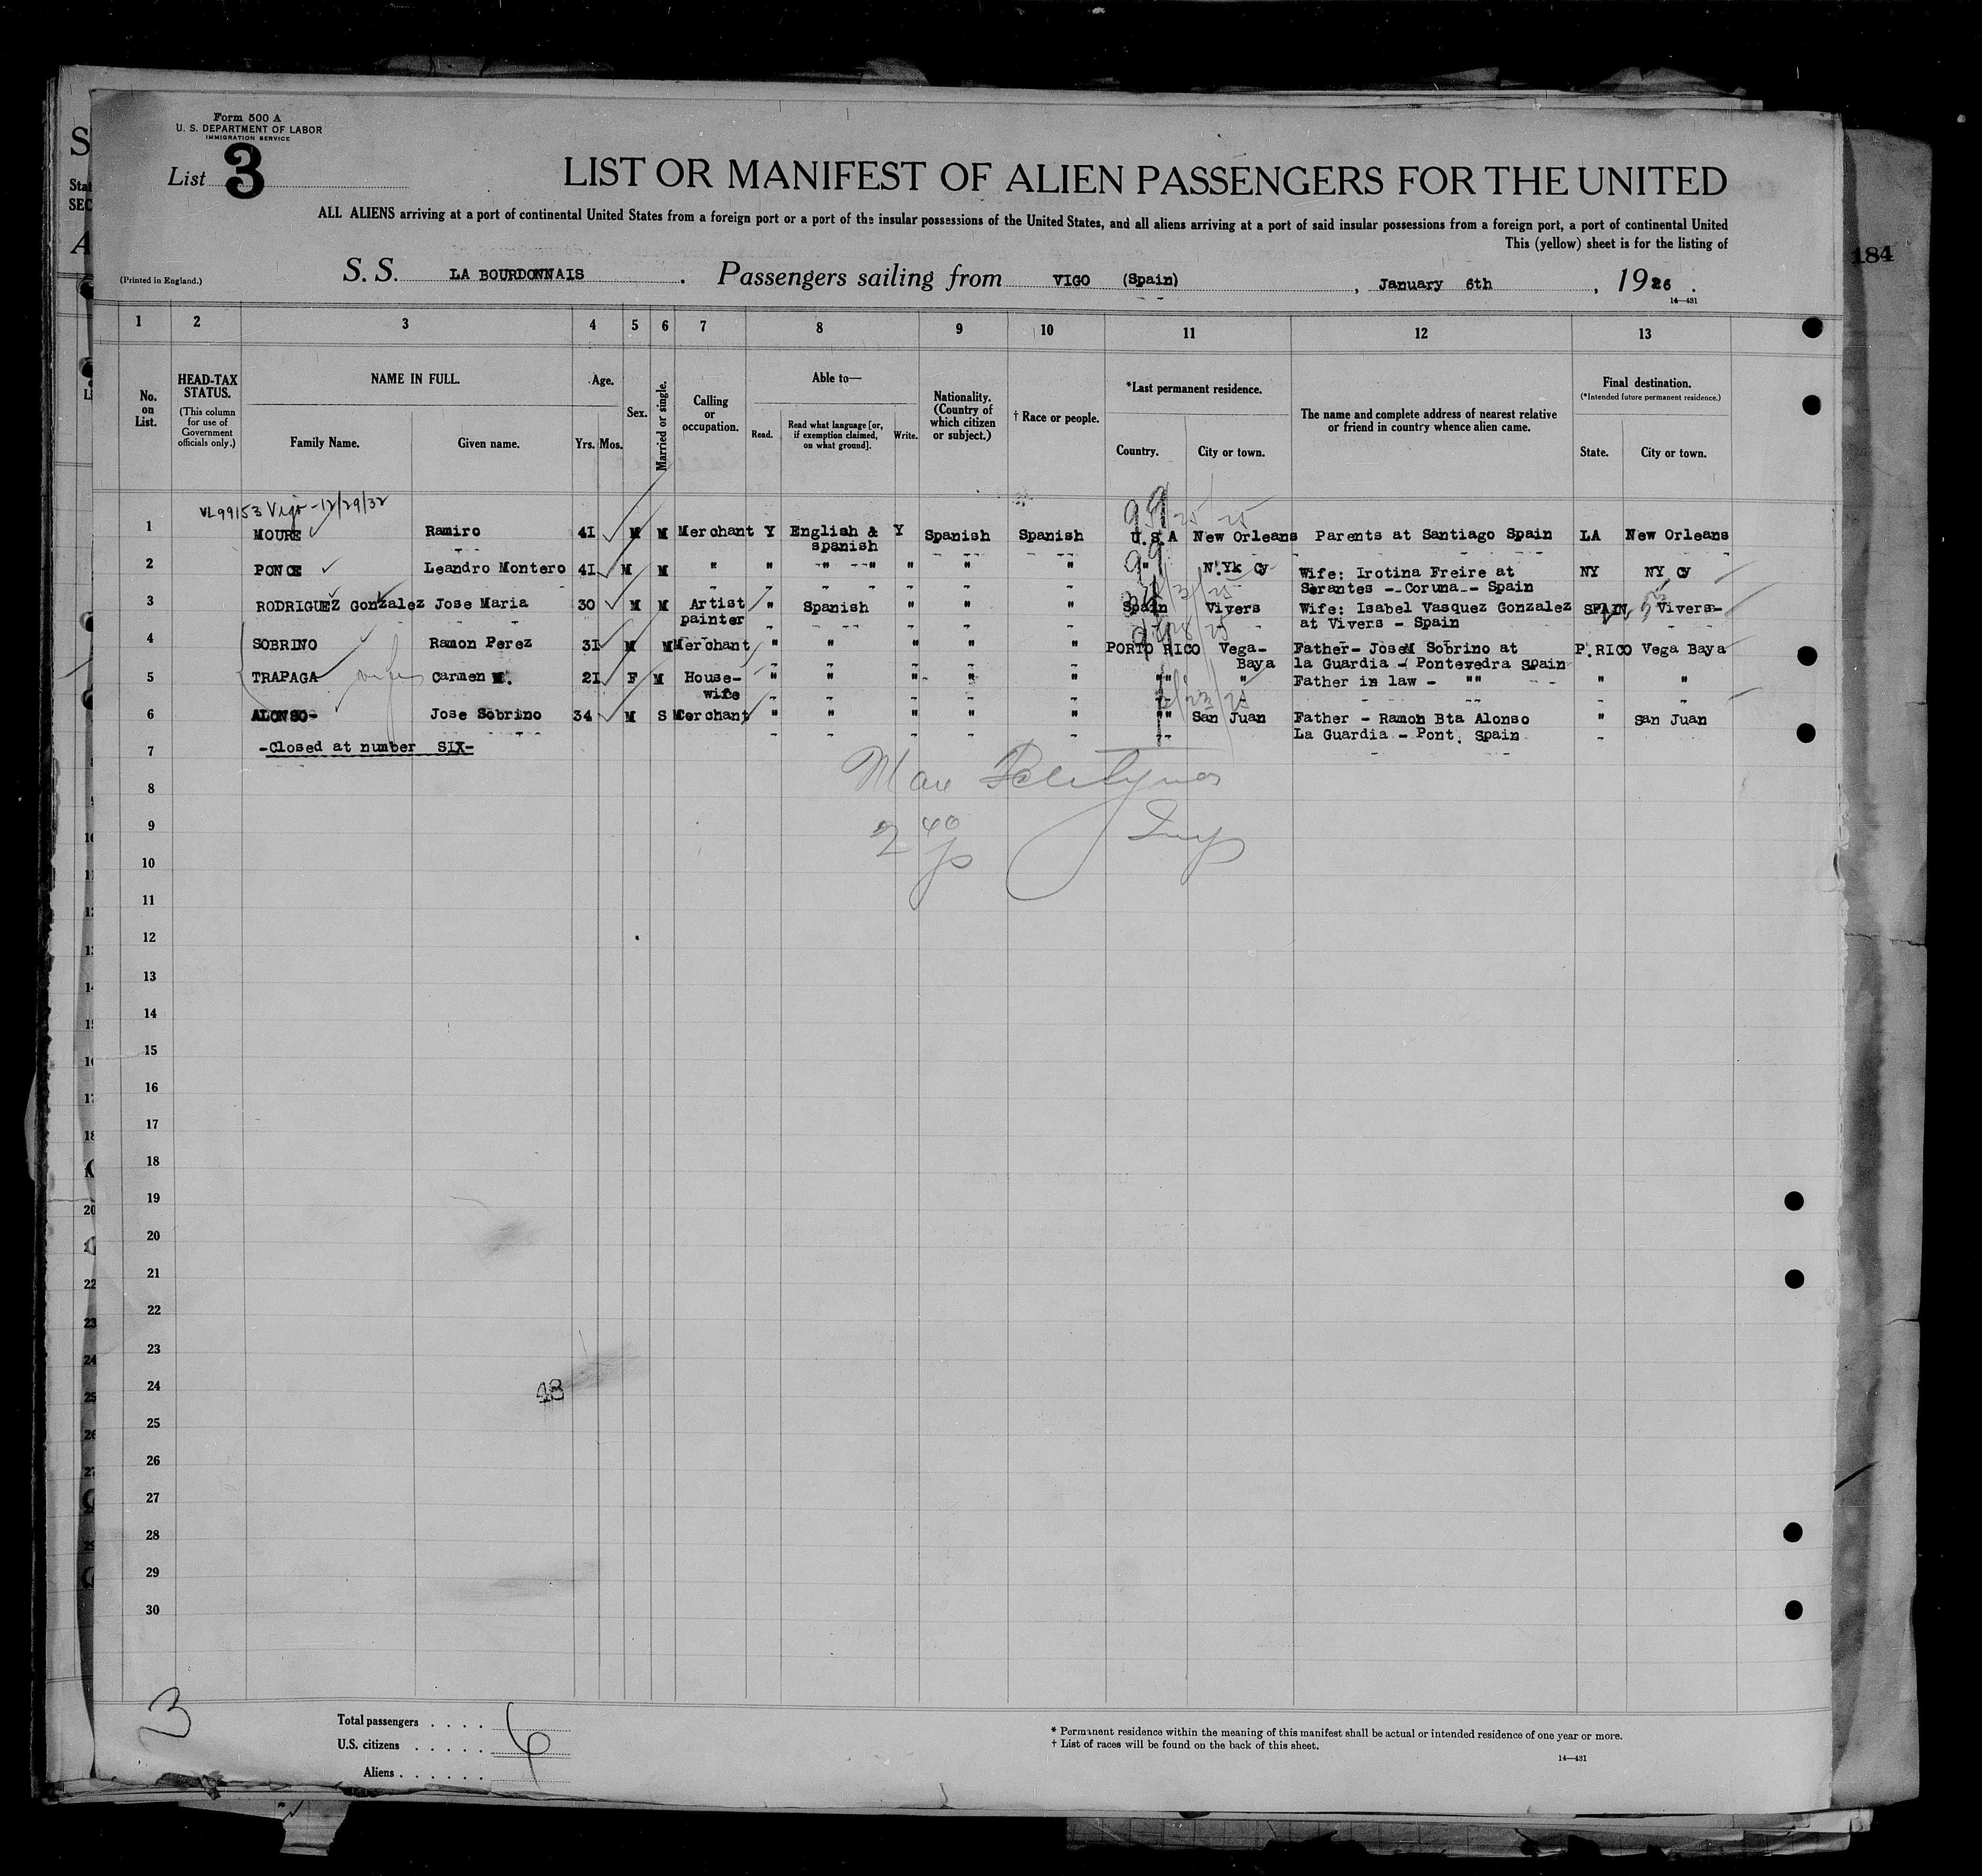 Form 500 A
U. S. DEPARTMENT OF LABOR
IMMIGRATION SERVICE
List 3
LIST OR MANIFEST OF ALIEN PASSENGERS FOR THE UNITED
ALL ALIENS arriving at a port of continental United States from a foreign port or a port of the insular possessions of the United States, and all aliens arriving at a port of said insular possessions from a foreign port, a port of continental United
This (yellow) sheet is for the listing of
184
(Printed in England.)
S. S. LA BOURDONNAIS . Passengers sailing from VIGO (Spain) , January 6th , 1926 .
14—431
1 2 3 4 5 6 7 8 9 10 11 12 13
No. on List.
HEAD-TAX STATUS.
(This column for use of Government officials only.)
NAME IN FULL.
Family Name. Given name.
Age.
Yrs. Mos.
Sex.
Married or single.
Calling or occupation.
Able to—
Read. Read what language [or, if exemption claimed, on what ground]. Write.
Nationality. (Country of which citizen or subject.)
† Race or people.
*Last permanent residence.
Country. City or town.
The name and complete address of nearest relative or friend in country whence alien came.
Final destination.
(*Intended future permanent residence.)
State. City or town.
VL99153 Vigo-12/29/32
1 MOURE Ramiro 41 M M Merchant Y English & spanish Y Spanish Spanish U.S.A New Orleans Parents at Santiago Spain LA New Orleans
2 PONCE Leandro Montero 41 M M " " " " " " " " N.Yk Cy Wife: Irotina Freire at Serantes -- Coruna -- Spain NY NY Cy
3 RODRIGUEZ Gonzalez Jose Maria 30 M M Artist painter " Spanish " " " Spain Vivers Wife: Isabel Vasquez Gonzalez at Vivers - Spain SPAIN Vivers-
4 SOBRINO Ramon Perez 31 M M Merchant " " " " " PORTO RICO Vega-Baya Father- JoseM Sobrino at la Guardia - Pontevedra Spain P.RICO Vega Baya
5 TRAPAGA wife Carmen M. 21 F M House-wife " " " " " "" " Father in law - "" " "
6 ALONSO- Jose Sobrino 34 M S Merchant " " " " " "" San Juan Father - Ramon Bta Alonso La Guardia - Pont. Spain " San Juan
7 -Closed at number SIX-
8
9
10
11
12
13
14
15
16
17
18
19
20
21
22
23
24
25
26
27
28
29
30
3
Total passengers . . . .
U.S. citizens . . . . .
Aliens . . . . . .
6
* Permanent residence within the meaning of this manifest shall be actual or intended residence of one year or more.
† List of races will be found on the back of this sheet.
14—431